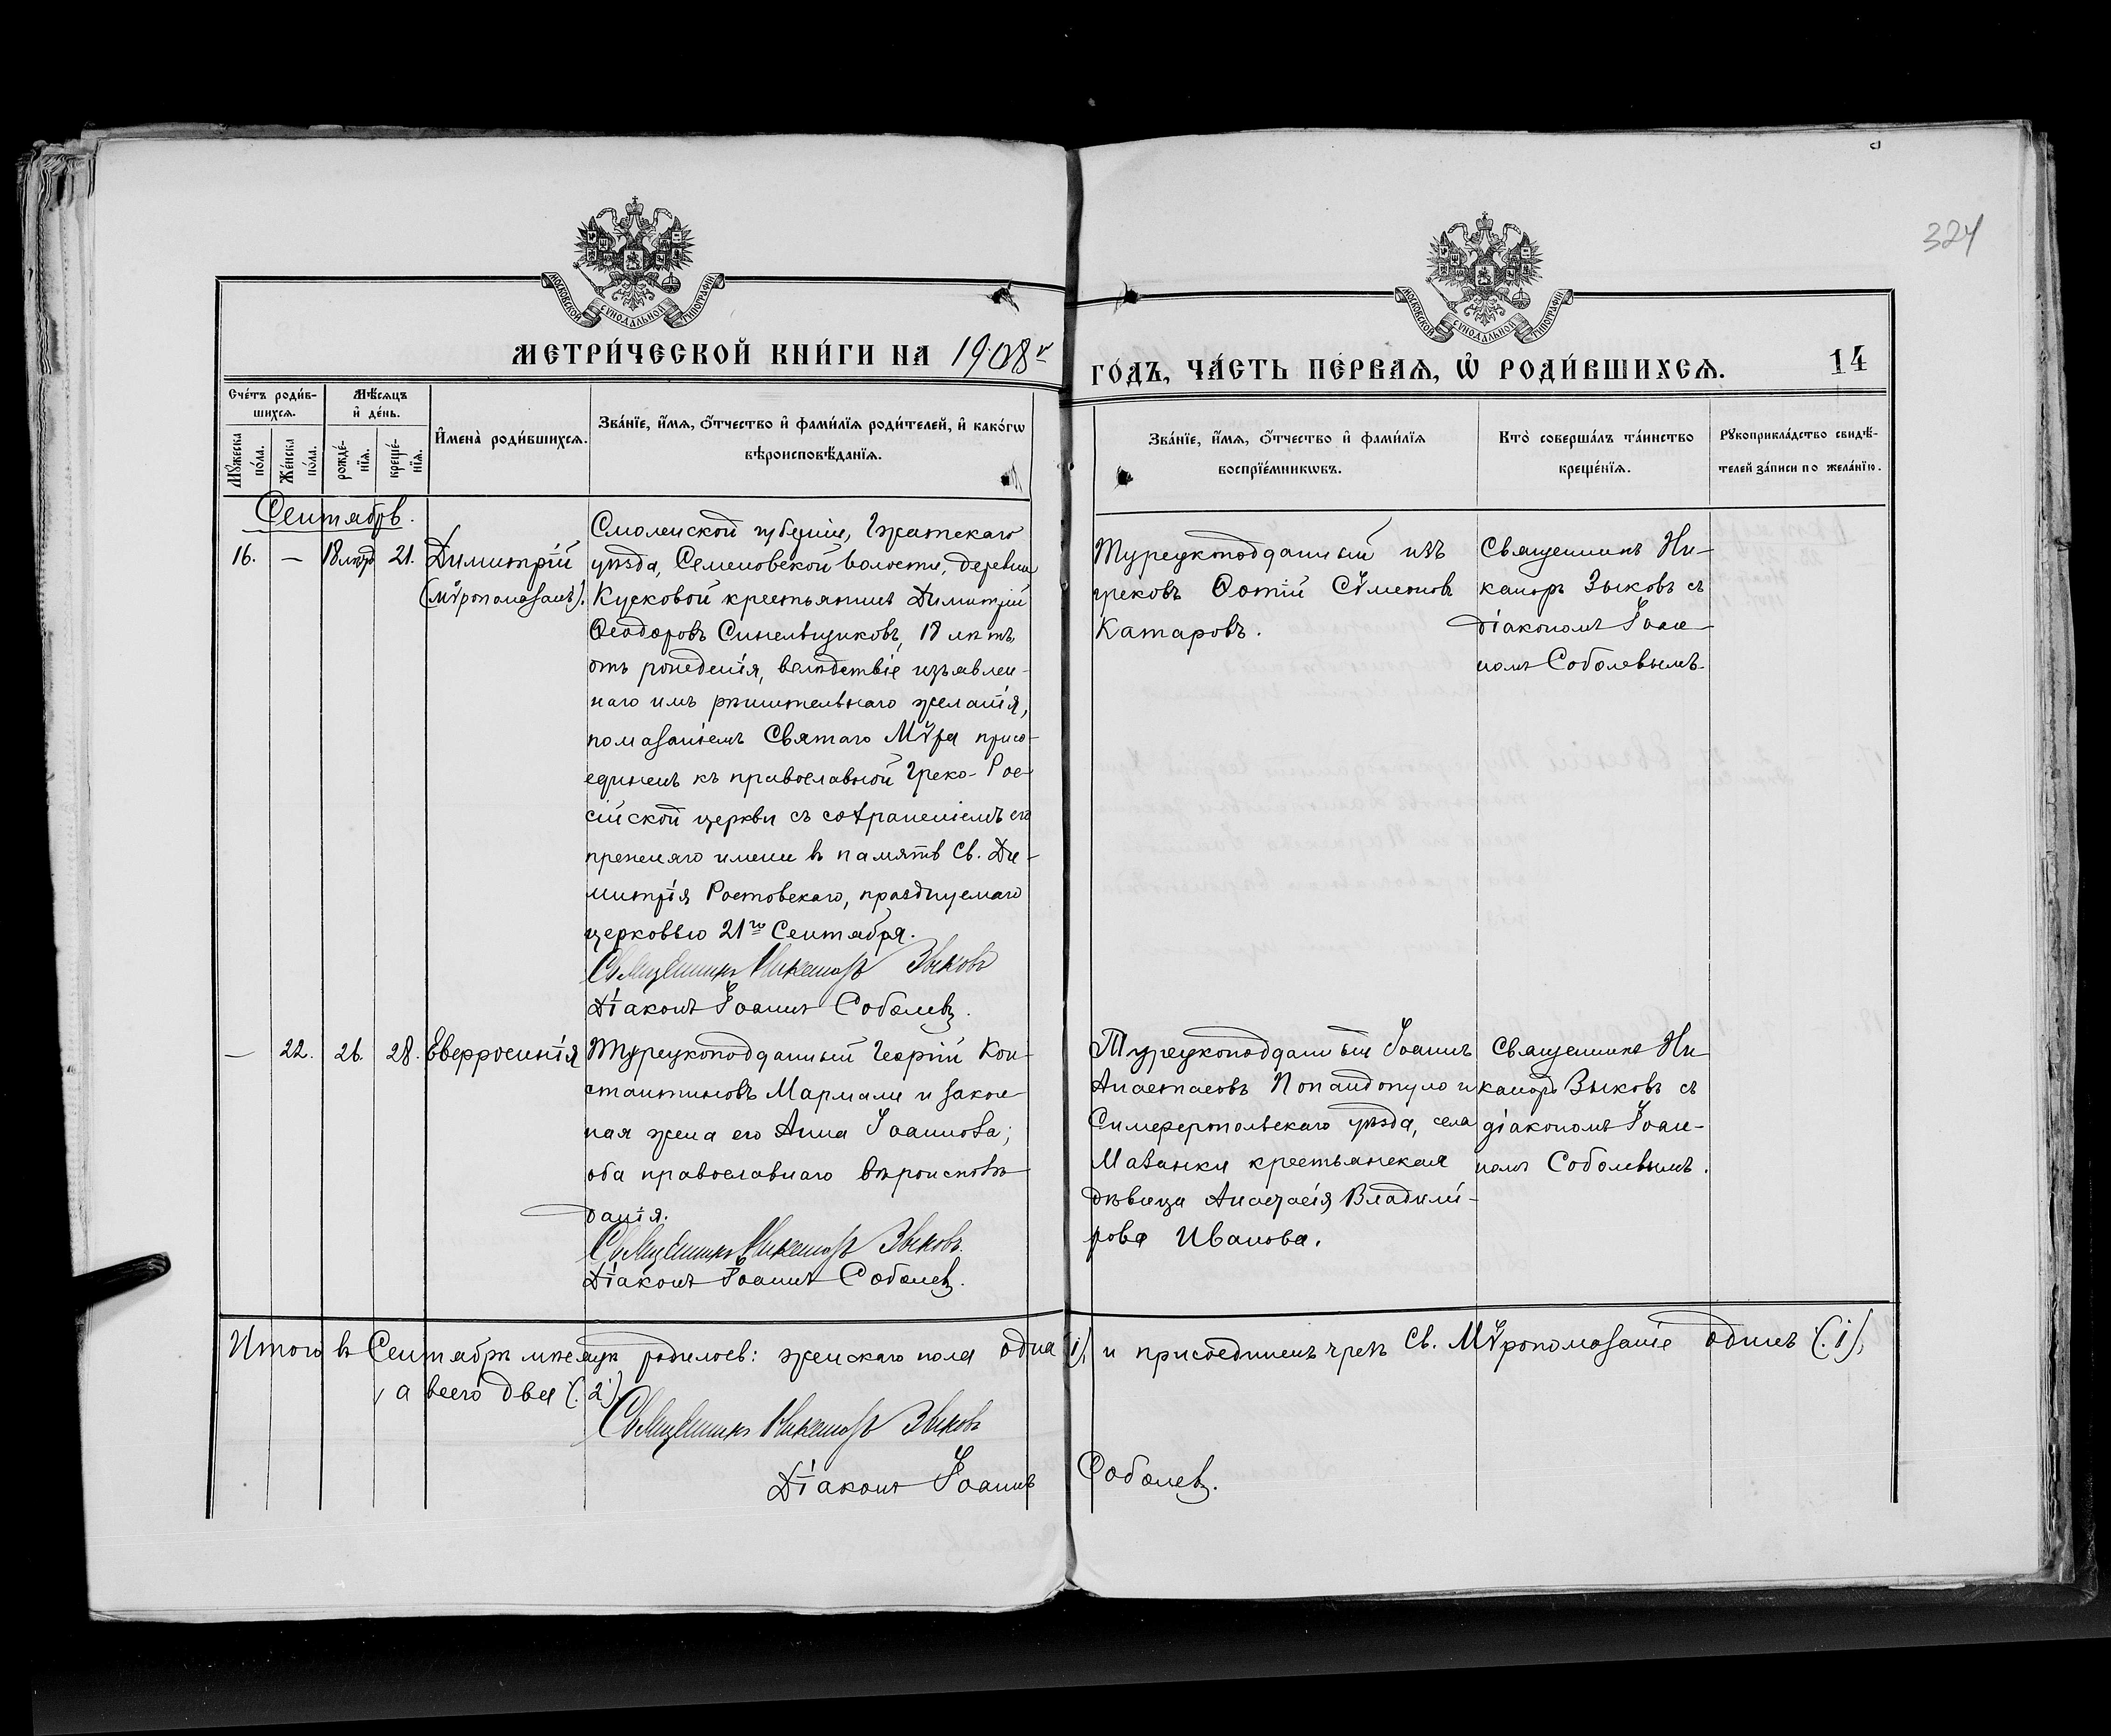 324
МОСКОВСКОЙ СѴНОДАЛЬНОЙ ТИПОГРАФІИ
МОСКОВСКОЙ СѴНОДАЛЬНОЙ ТИПОГРАФІИ
МЕТРИ́ЧЕСКОЙ КНИ́ГИ НА 1908 г
ГО́ДЪ, ЧА́СТЬ ПЕ́РВАѦ, Ѡ҆ РОДИ́ВШИХСѦ.
14
Сче́тъ роди́в-
шихсѧ.
Мѣ́сѧцъ
и҆ де́нь.
Мꙋ́жеска
по́ла.
Же́нска
по́ла.
рожде́-
нїѧ.
креще́-
нїѧ.
И҆мена̀ роди́вшихсѧ.
Зва́нїе, и҆́мѧ, ѻ҆́тчество и҆ фами́лїѧ роди́телей, и҆ како́гѡ
вѣроисповѣ́данїѧ.
Зва́нїе, и҆́мѧ, ѻ҆́тчество и҆ фами́лїѧ
воспрїе́мникѡвъ.
Кто̀ соверша́лъ та́инство
креще́нїѧ.
Рꙋкоприкла́дство свидѣ́-
телей за́писи по жела́нїю.
Сентябрь.
16. — 18 лѣтъ 21. Димитрій
(мѵропомазанъ).
Смоленской губерніи, Гжатскаго
уѣзда, Семеновской волости, деревни
Кусковой крестьянинъ Димитрій
Ѳеодоровъ Синельщиковъ, 18 лѣтъ
отъ рожденія, вслѣдствіе изъявлен-
наго имъ рѣшительнаго желанія,
помазаніемъ Святаго Мѵра присо-
единенъ къ православной Греко-Рос-
сійской церкви съ сохраненіемъ его
прежняго имени въ память Св. Ди-
митрія Ростовскаго, празднуемаго
церковью 21го Сентября.
Священникъ Никаноръ Зыковъ
Діаконъ Іоаннъ Соболевъ.
Турецкоподданный изъ
грековъ Фотій Сѵмеонов
Катаровъ.
Священникъ Ни-
каноръ Зыковъ съ
діакономъ Іоан-
номъ Соболевымъ
— 22. 26. 28. Евфросинія
Турецкоподданный Георгій Кон-
стантиновъ Мармали и закон-
ная жена его Анна Іоаннова;
оба православнаго вѣроисповѣ-
данія.
Священникъ Никаноръ Зыковъ.
Діаконъ Іоаннъ Соболевъ.
Турецкоподданный Іоаннъ
Анастасовъ Попандопуло и
Симферопольскаго уѣзда, села
Мазанки крестьянская
дѣвица Анастасія Владимі-
рова Иванова.
Священникъ Ни-
каноръ Зыковъ съ
діакономъ Іоан-
номъ Соболевымъ.
Итого въ Сентябрѣ мѣсяцѣ родилось: женскаго пола одна (1), и присоединенъ чрезъ Св. Мѵропомазаніе одинъ (1),
а всего два (2)
Священникъ Никаноръ Зыковъ
Діаконъ Іоаннъ Соболевъ.